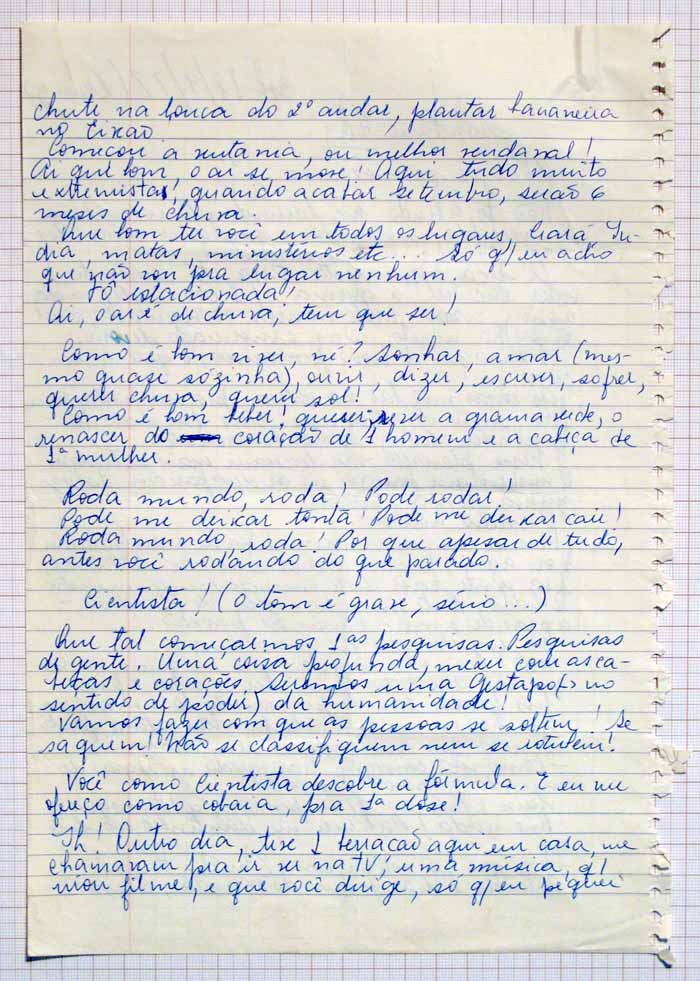 chute na louca do 2º andar, plantar bananeira
no lixão
Começou a ventania, ou melhor vendaval!
Ai que bom, o ar se move! Aqui tudo muito
extremista, quando acabar setembro, serão 6
meses de chuva.
Que bom ter você em todos os lugares, Ceará Ín-
dia, matas, ministérios etc... Só q/ eu acho
que não vou pra lugar nenhum.
Tô estacionada!
Ai, o ar é de chuva, tem que ser!
Como é bom viver, né? Sonhar, amar (mes-
mo quase sózinha), ouvir, dizer, escrever, sofrer,
querer chuva, querer sol!
Como é bom beber! querer ver a grama verde, o
renascer do coração de 1 homem e a cabeça de
1ª mulher.
Roda mundo, roda! Pode rodar!
Pode me deixar tonta! Pode me deixar cair!
Roda mundo, roda! Por que apesar de tudo,
antes você rodando do que parado.
Cientista! (O tom é grave, sério...)
Que tal começarmos 1as pesquisas. Pesquisas
de gente. Uma coisa profunda, mexer com as ca-
beças e corações. Seremos uma Gestapo (> no
sentido de poder) da humanidade!
Vamos fazer com que as pessoas se soltem! Se
saquem! Não se classifiquem nem se rotulem!
Você como Cientista descobre a fórmula. E eu me
ofereço como cobaia, pra 1ª dose!
Ih! Outro dia, tive 1 sensação aqui em casa, me
chamaram pra ir ver na TV, uma música, q/
virou filme, e que você dirige, só q/ eu peguei